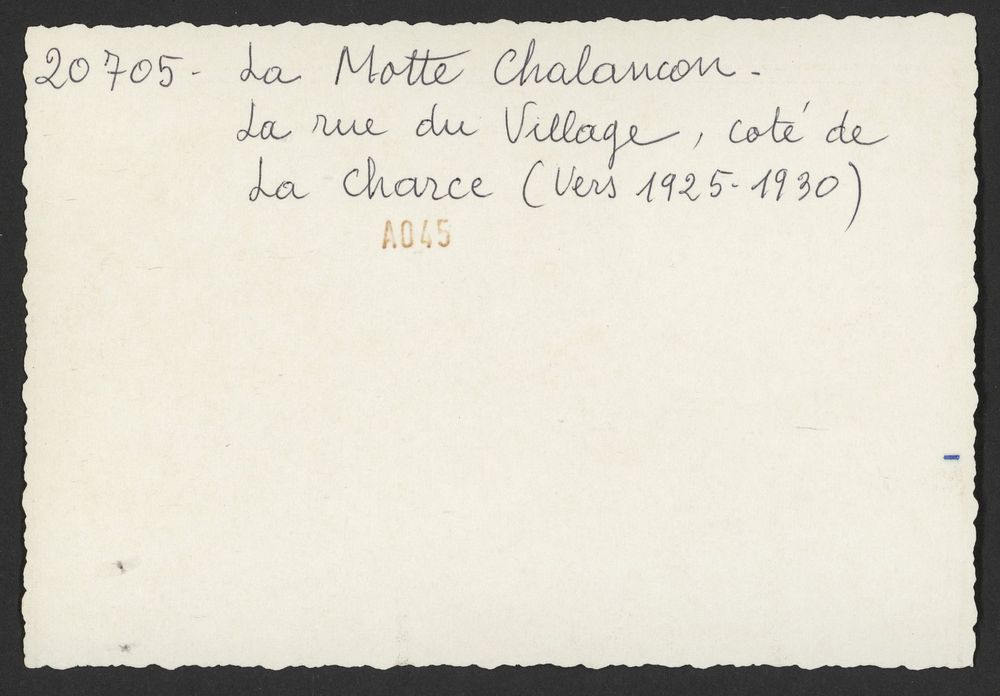 20705- La Motte Chalancon.
La rue du Village, coté de
La Charce (Vers 1925-1930)
A045